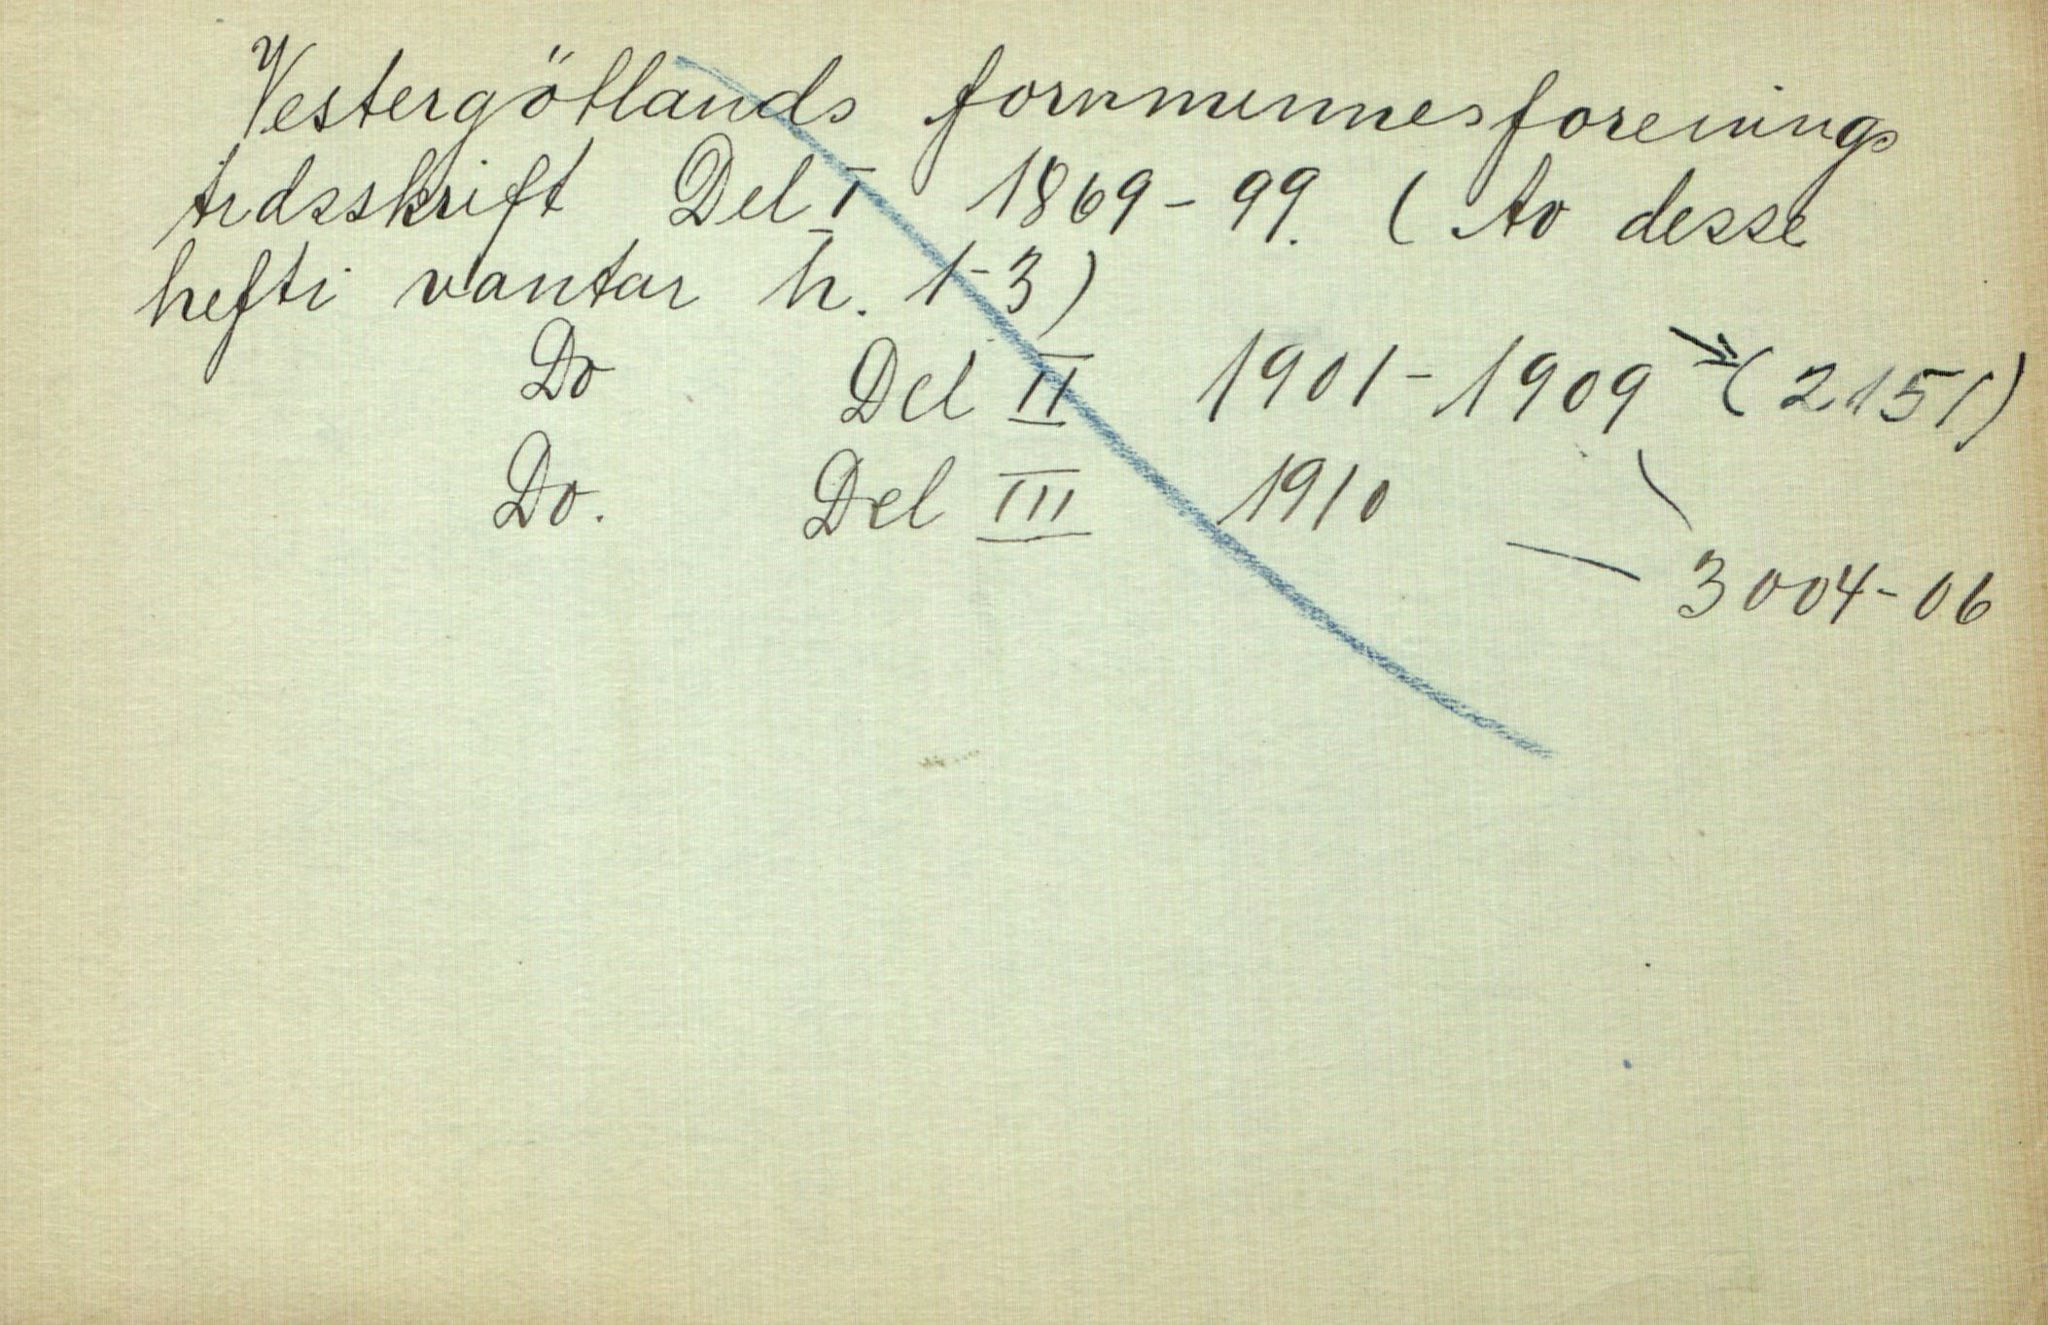 Vestergötlands fornminnesforenings
tidsskrift Del I 1869-99. (Av desse
hefti vantar h. 1-3)
Do Del II 1901-1909 → (2151)
Do. Del III 1910
3004-06